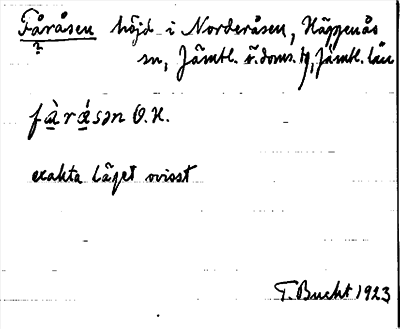 Fåråsen höjd i Norderåsen, Häggenås
?
sn, Jämtl. ö. doms. tg, Jämtl. län
fà̱rǽ̱sən O.H.
exakta läget ovisst
T. Bucht 1923